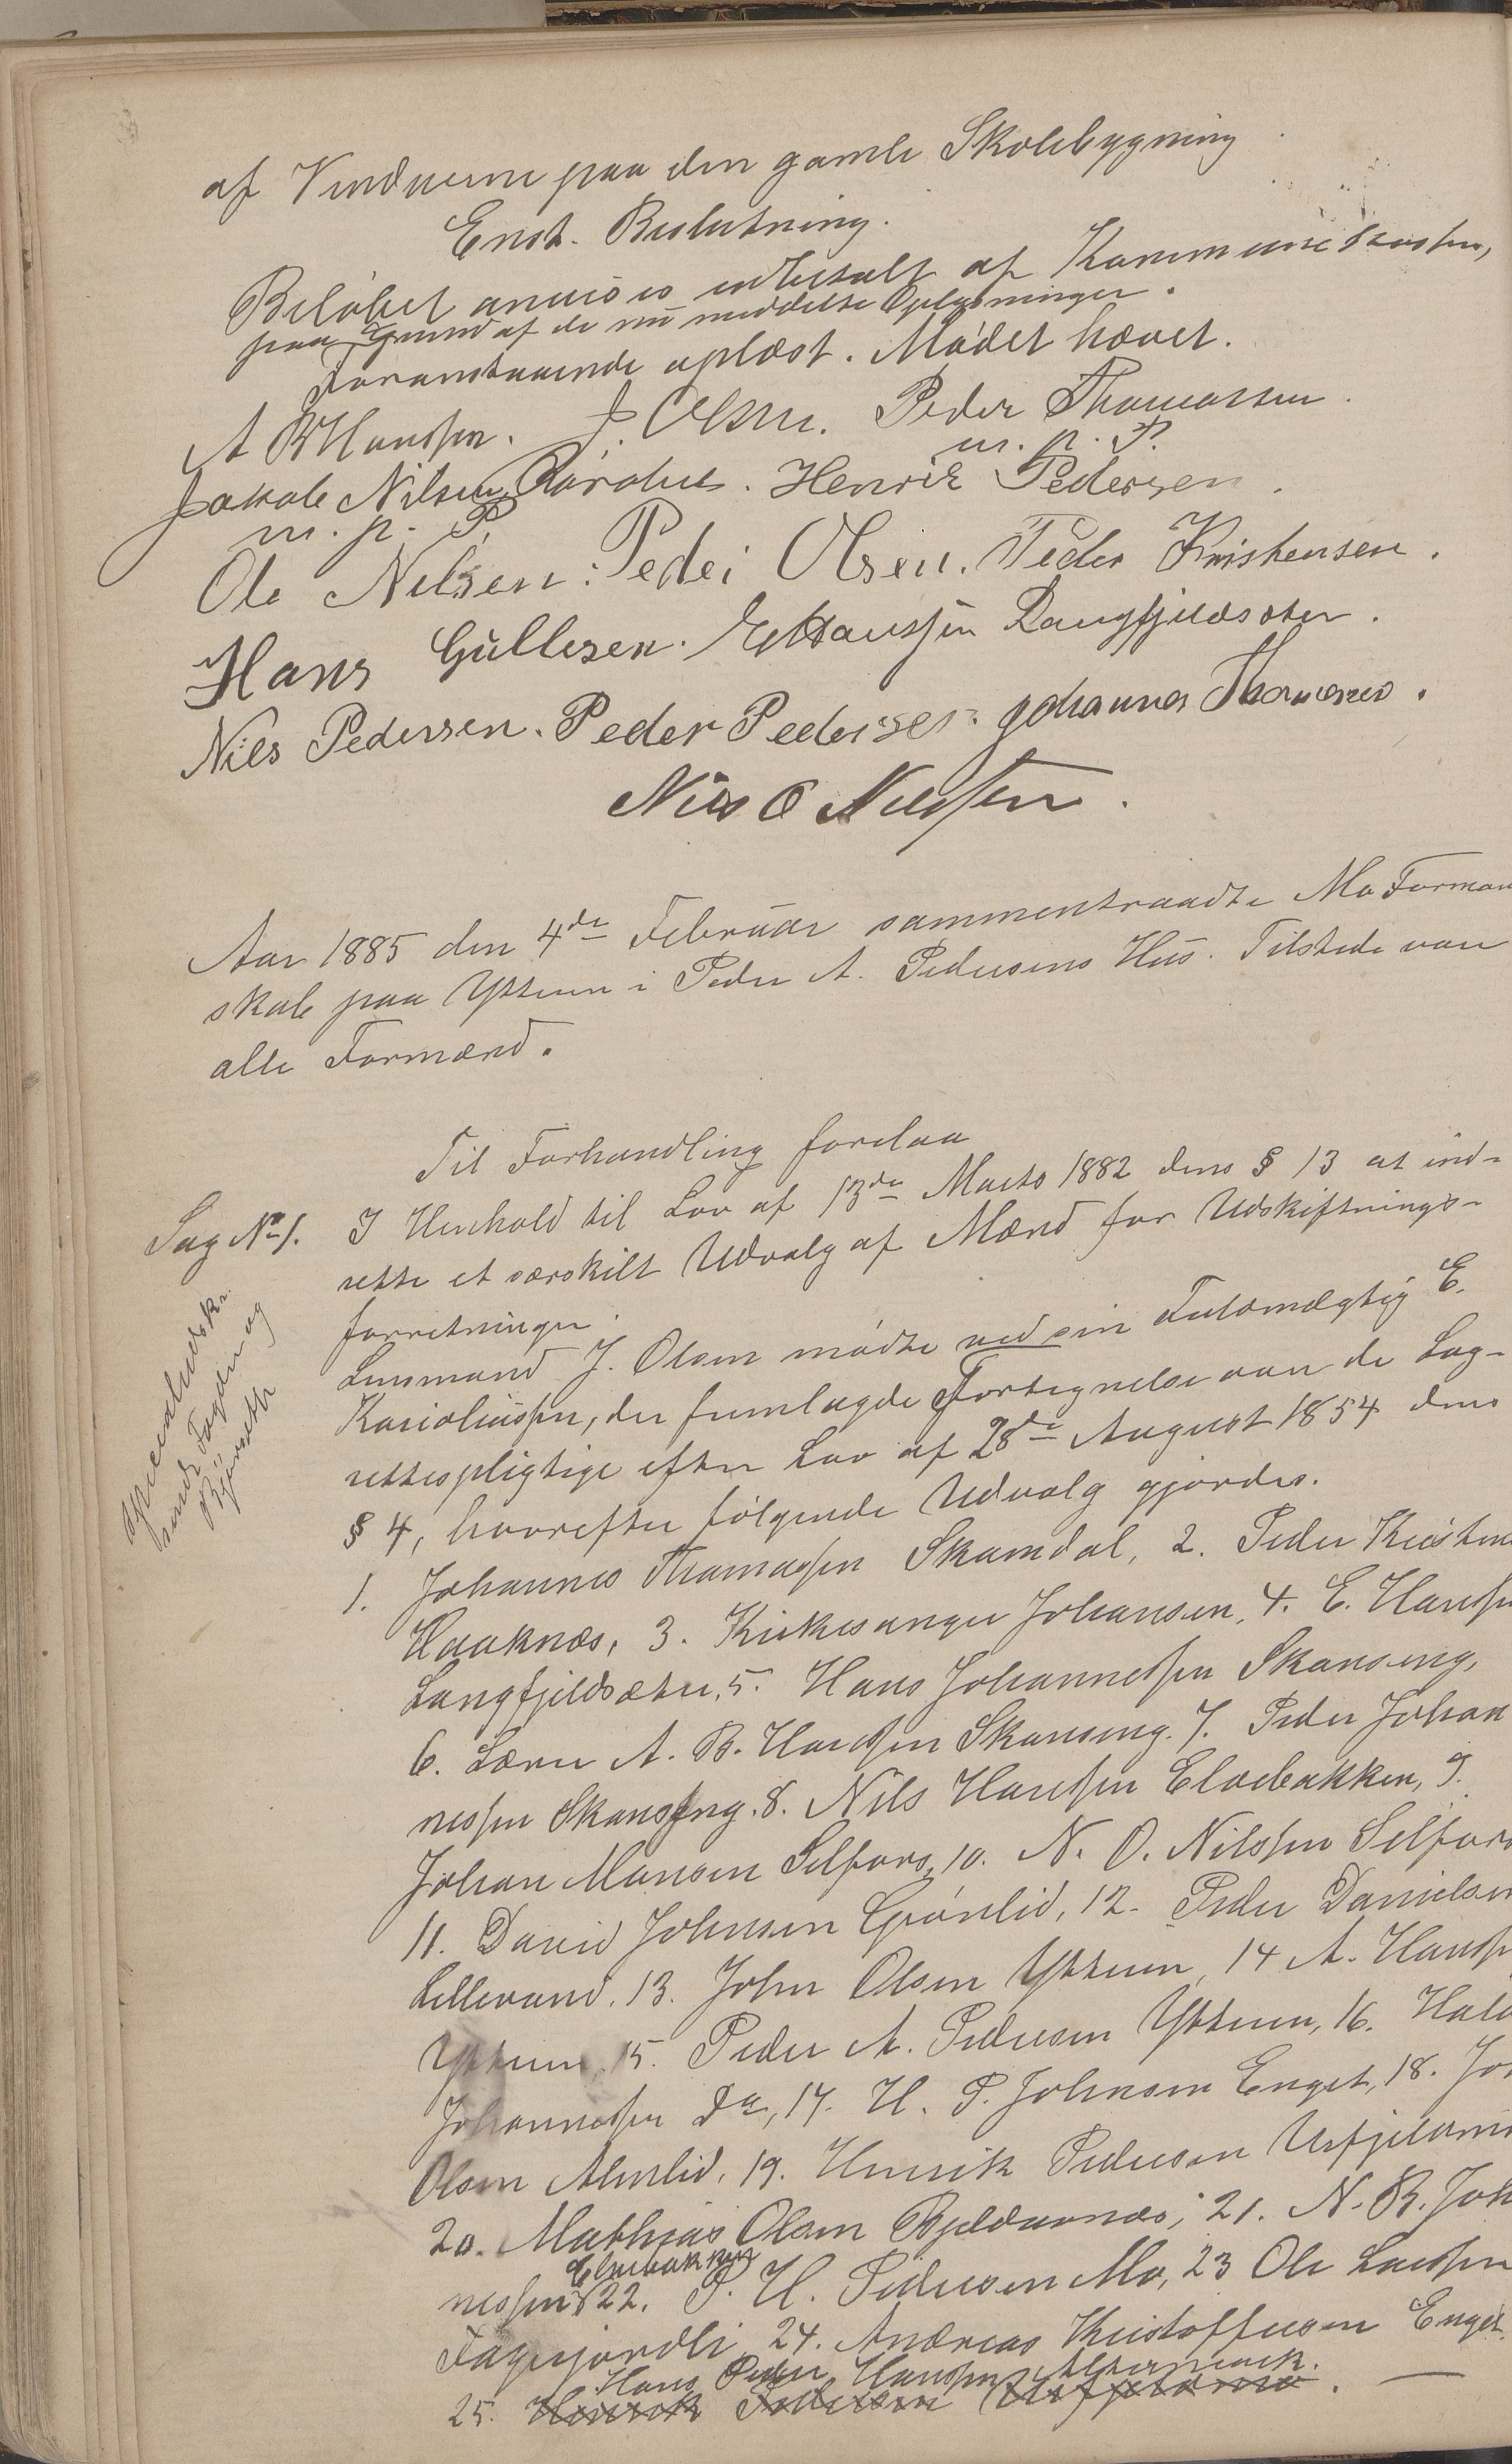 af Vinduerne paa den gamle Skolebygning
Enst. Beslutning.
Beløbet anvises udbetalt af Kommunekassen,
paa Grund af de nu meddelte Oplysninger.
Foranstaaende oplæst. Mødet hævet.
A B Hanssen. J. Olsen. Peder Thomassen.
m. p. P.
Jakob Nilsen. Henrik Pedersen.
m. p. P.
Ole Nilsen. Peder Olsen. Peder Kristensen.
Hans Gullesen. E Hanssen Langfjeldsæter.
Nils Pedersen. Peder Pedersen. Johannes Thomassen.
Nils O Nilssen.
Aar 1885 den 4de Februar sammentraadte Mo Forman
skab paa Ytteren i Peder A. Pedersens Hus. Tilstede var
alle Formænd.
Til Forhandling forelaa
Sag No 1. I Henhold til Lov af 13de Marts 1882 dens § 13 at ind-
rette et særskilt Udvalg af Mænd for Udskiftnings-
forretninger.
Lensmand J. Olsen mødte ved sin Fuldmægtig E.
Karoliussen, der fremlagde Fortegnelse over de Lag-
rettespligtige efter Lov af 28de August 1854 dens
§ 4, hvorefter følgende Udvalg gjordes.
sendt Fogden og
1. Johannes Thomassen Skamdal, 2. Peder Kristens
Haaknæs, 3. Kirkesanger Johansen, 4. E. Hanssen
Langfjeldsæter, 5. Hans Johannessen Skanseng,
6. Lærer A. B. Hanssen Skanseng. 7. Peder Johan
nessen Skanseng. 8. Nils Hanssen Elvebakken, 9.
Johan Monsen Selfors, 10. N. O. Nilssen Selfors
11. David Johnsen Grønlid, 12. Peder Danielsen
Lillevand. 13. John Olsen Ytteren, 14 A. Hanss
Ytteren, 15. Peder A. Pedersen Ytteren, 16. Hals
Johannessen Do, 17. H. P. Johnsen Enget, 18. Jo
Olsen Almlid, 19. Henrik Pedersen Urfjeldmo
20. Mathias Olsen Bjeldaanæs, 21. N. B. Joh
Elvebakken
nessen 22. P. H. Pedersen Mo, 23 Ole Larssen
Fagerjordli, 24. Andreas Kristoffersen Enget.
Hans Peder Hanssen
25. Henrik Pedersen Urfjeldmo. —